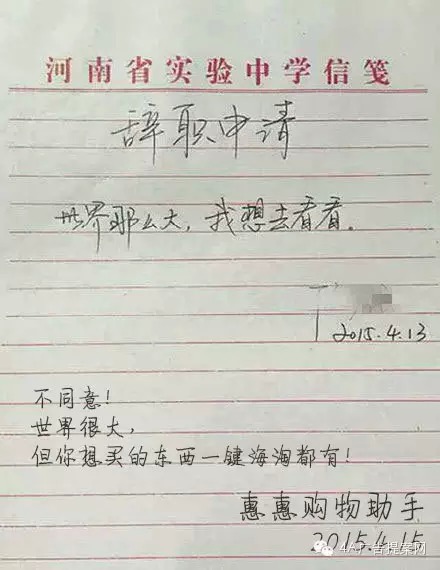 河南省实验中学信笺
辞职申请
世界那么大，我想去看看.
2015.4.13
不同意！
世界很大，
但你想买的东西一键海淘都有！
惠惠购物助手
2015.4.15
4A广告提案网